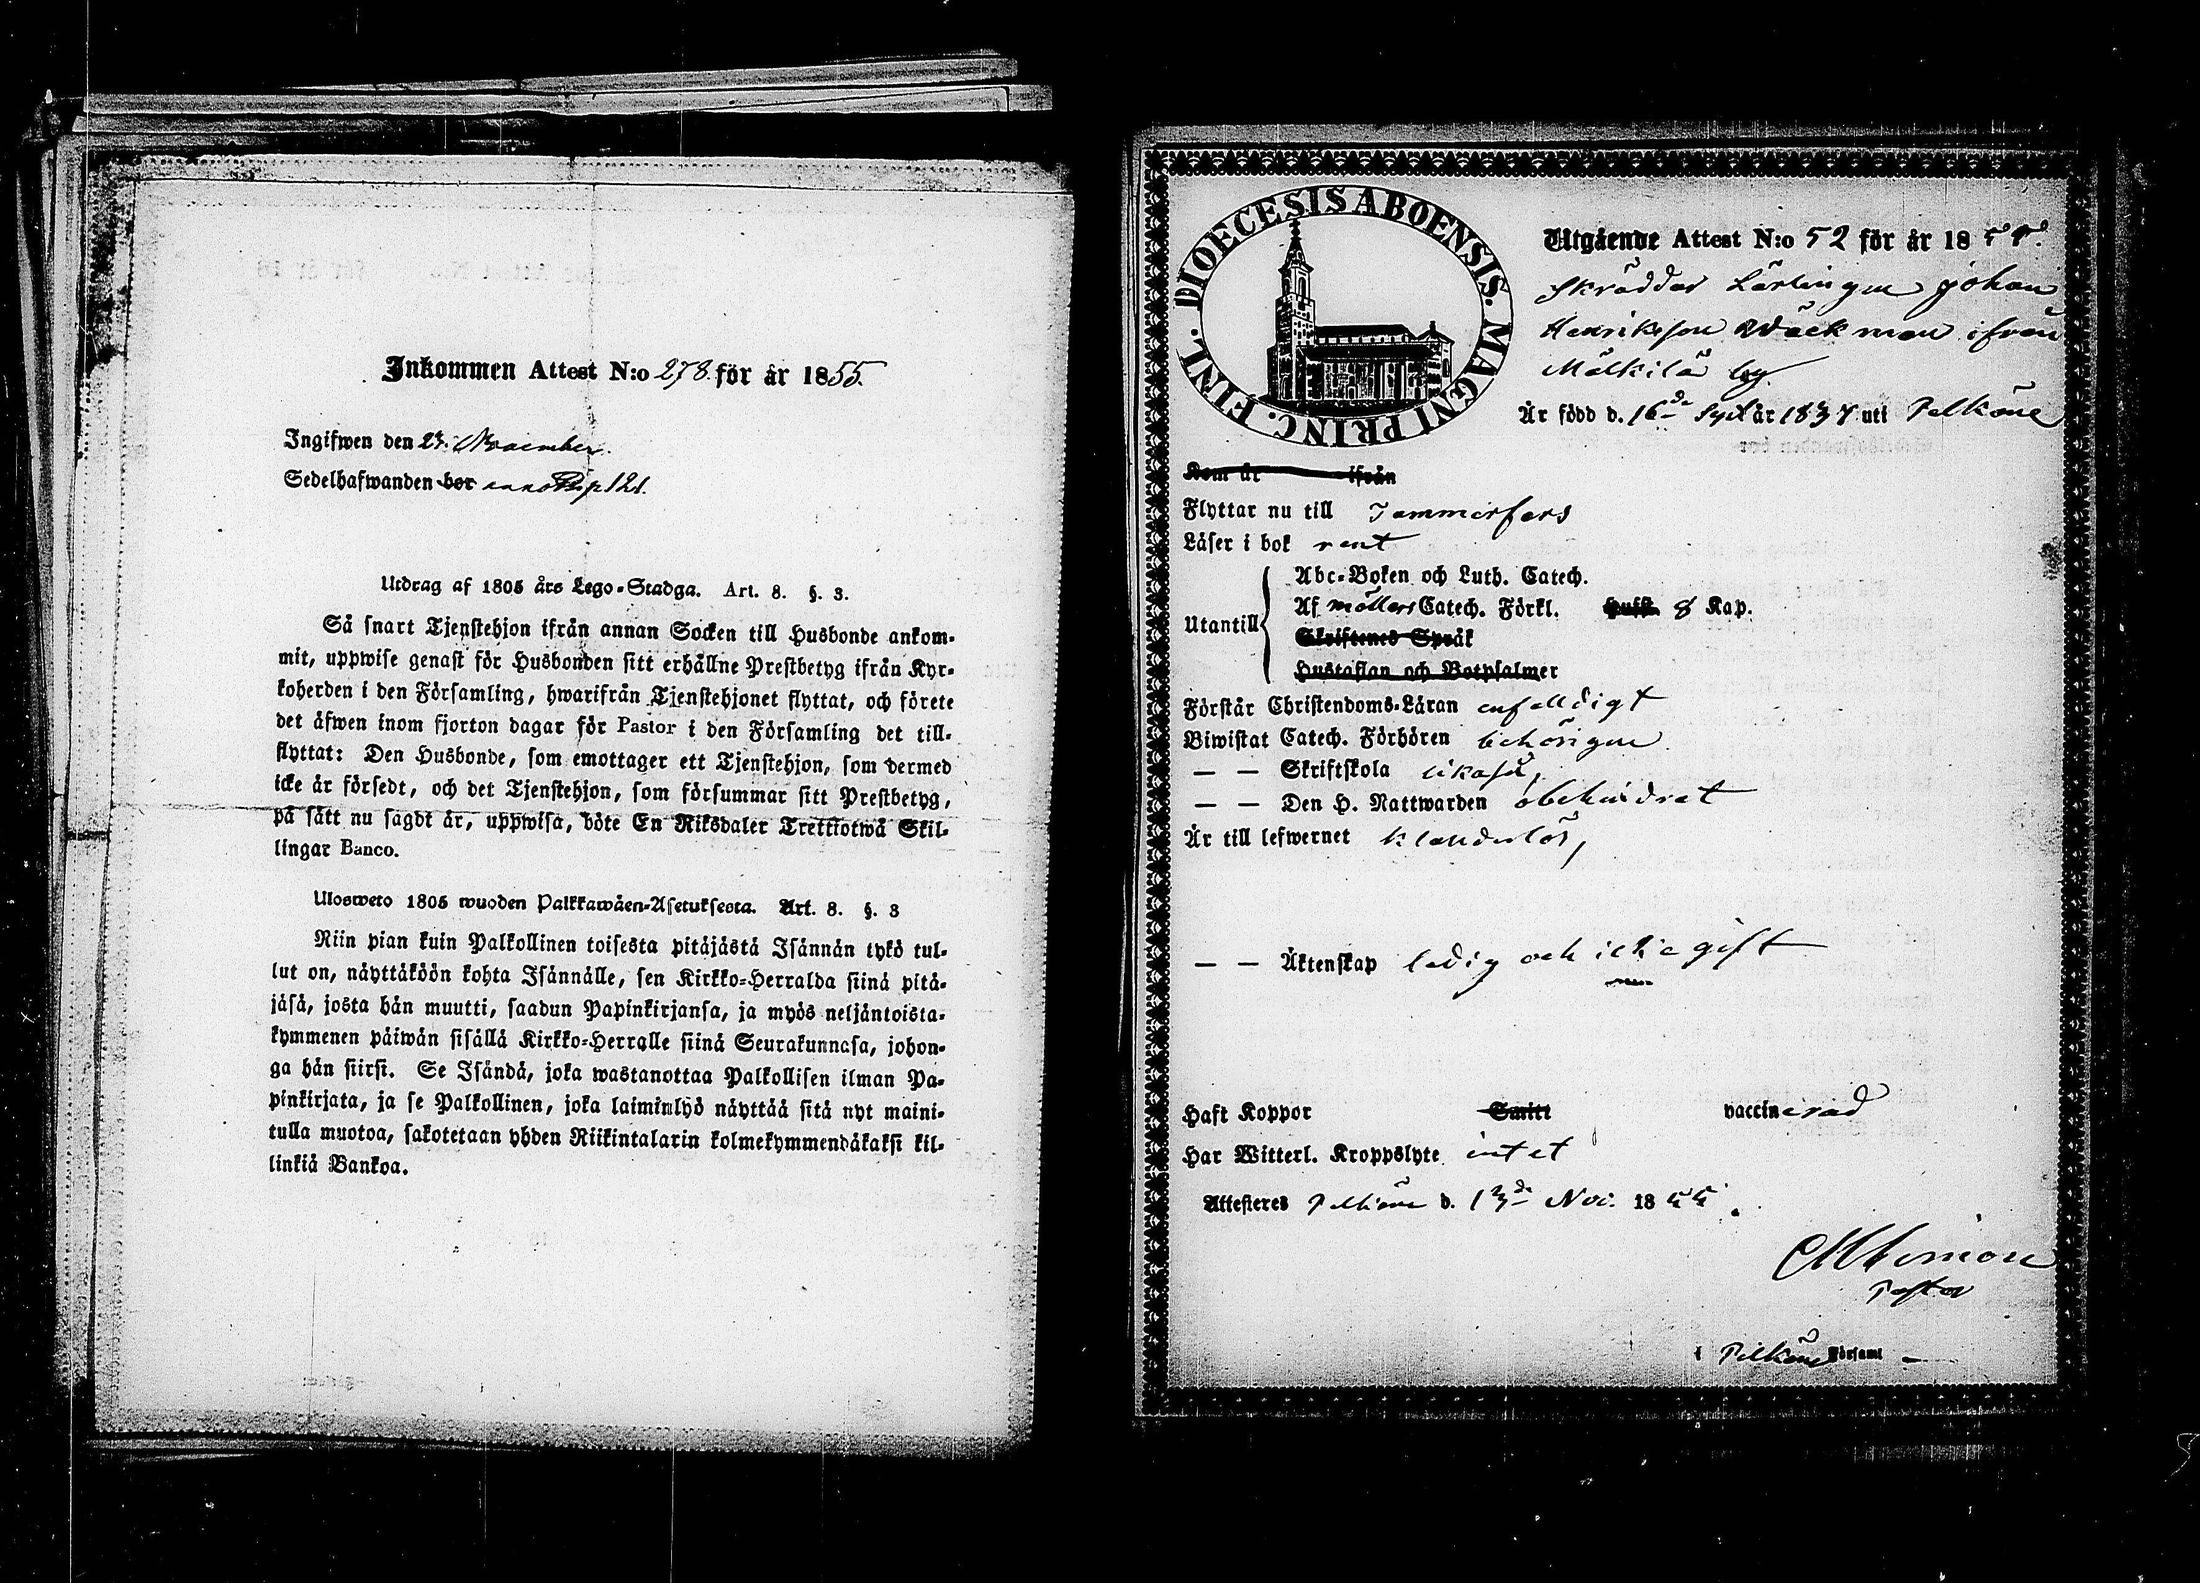 Inkommen Attest N:o 278. för år 1855.
Ingifwen den 23. November.
Sedelhafwanden bor
Utdrag af 1805 års Lego-Stadga. Art. 8. §. 3.
Så snart Tjenstehjon ifrån annan Socken till Husbonde ankom-
mit, uppwise genast för Husbonden sitt erhållne Prestbetyg ifrån Kyr-
koherden i den Församling, hwarifrån Tjenstehjonet flyttat, och förete
det äfwen inom fjorton dagar för Pastor i den Församling det till-
flyttat: Den Husbonde, som emottager ett Tjenstehjon, som dermed
icke är försedt, och det Tjenstehjon, som försummar sitt Prestbetyg,
på sätt nu sagdt är, uppwisa, böte En Riksdaler Trettiotwå Skil-
lingar Banco.
Ulosweto 1805 wuoden Palkkawäen-Asetuksesta. Art. 8. §. 3
Niin pian kuin Palkollinen toisesta pitäjästä Isännän tykö tul-
lut on, näyttäköön kohta Isännälle, sen Kirkko-Herralda siinä pitä-
jäsä, josta hän muutti, saadun Papinkirjansa, ja myös neljäntoista-
kymmenen päiwän sisällä Kirkko-Herralle siinä Seurakunnasa, johon-
ga hän siirsi. Se Isändä, joka wastanottaa Palkollisen ilman Pa-
pinkirjata, ja se Palkollinen, joka laiminlyö näyttää sitä nyt maini-
tulla muotoa, sakotetaan yhden Riikintalarin kolmekymmendäkaksi kil-
linkiä Bankoa.
DIOECESIS ABOENSIS. MAGNI PRINC. FINL.
Utgående Attest N:o 52 för år 1855.
Skräddar Lärlingen Johan
Henriksson Wäckman ifrån
Mälkilä by.
Är född d. 16de Sept år 1837 uti Pelkäne
Kom år ifrån
Flyttar nu till Tammerfors
Läser i bok rent
Utantill
Abc-Boken och Luth. Catech.
Af Möllers Catech. Förkl. Hufst. 8 Kap.
Skriftenes Språk
Hustaflan och Botpsalmer
Förstår Christendoms-Läran enfaldigt
Biwistat Catech. Förhören behörigen
— — Skriftskola likaså,
— — Den H. Nattwarden obehindrat
Är till lefwernet klanderlös,
— — Äktenskap ledig och icke gift
Haft Koppor Smitt vaccinerad
Har Witterl. Kroppslyte intet
Attesteres Pelkäne d. 13de Nov. 1855.
Pastor
i Pelkäne Församl